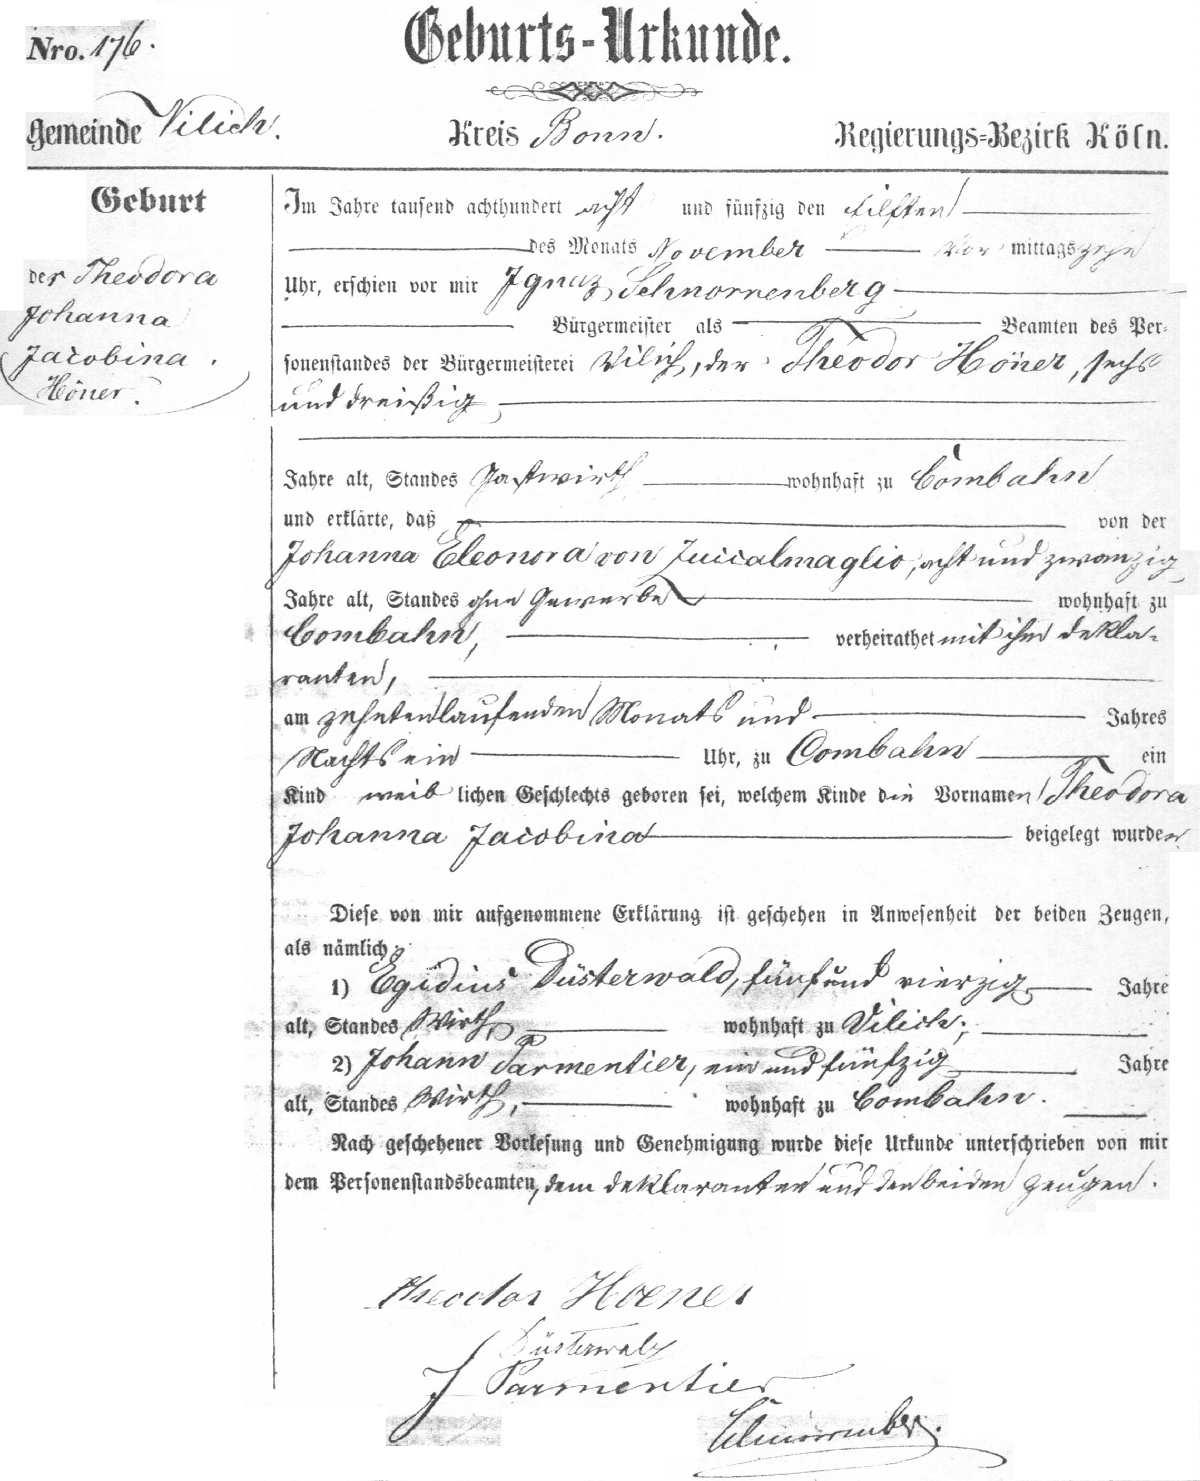 Nro. 176.
Geburts-Urkunde.
Gemeinde Vilich.
Kreis Bonn.
Regierungs-Bezirk Köln.
Geburt
der Theodora
Johanna
Jacobina.
Höner.
Im Jahre tausend achthundert acht und fünfzig den eilften
des Monats November Vor mittags zehn
Uhr, erschien vor mir Ignaz Schnorrenberg
Bürgermeister als Beamten des Per-
sonenstandes der Bürgermeisterei Vilich, der Theodor Höner, sechs
und dreißig
Jahre alt, Standes Gastwirth wohnhaft zu Combahn
und erklärte, daß von der
Johanna Eleonora von Zuccalmaglio, acht und zwanzig
Jahre alt, Standes ohne Gewerbe wohnhaft zu
Combahn, verheirathet mit ihm Dekla-
ranten,
am zehnten laufenden Monats und Jahres
Nachts ein Uhr, zu Combahn ein
Kind weib lichen Geschlechts geboren sei, welchem Kinde die Vornamen Theodora
Johanna Jacobina beigelegt wurden
Diese von mir aufgenommene Erklärung ist geschehen in Anwesenheit der beiden Zeugen,
als nämlich:
1) Egidius Düsterwald, fünf und vierzig Jahre
alt, Standes Wirth, wohnhaft zu Vilich;
2) Johann Parmentier, ein und fünfzig Jahre
alt, Standes Wirth, wohnhaft zu Combahn.
Nach geschehener Vorlesung und Genehmigung wurde diese Urkunde unterschrieben von mir
dem Personenstandsbeamten, dem Deklaranten und den beiden Zeugen.
Theodor Hoener
Düsterwald
J Parmentier
Schnorrenberg.